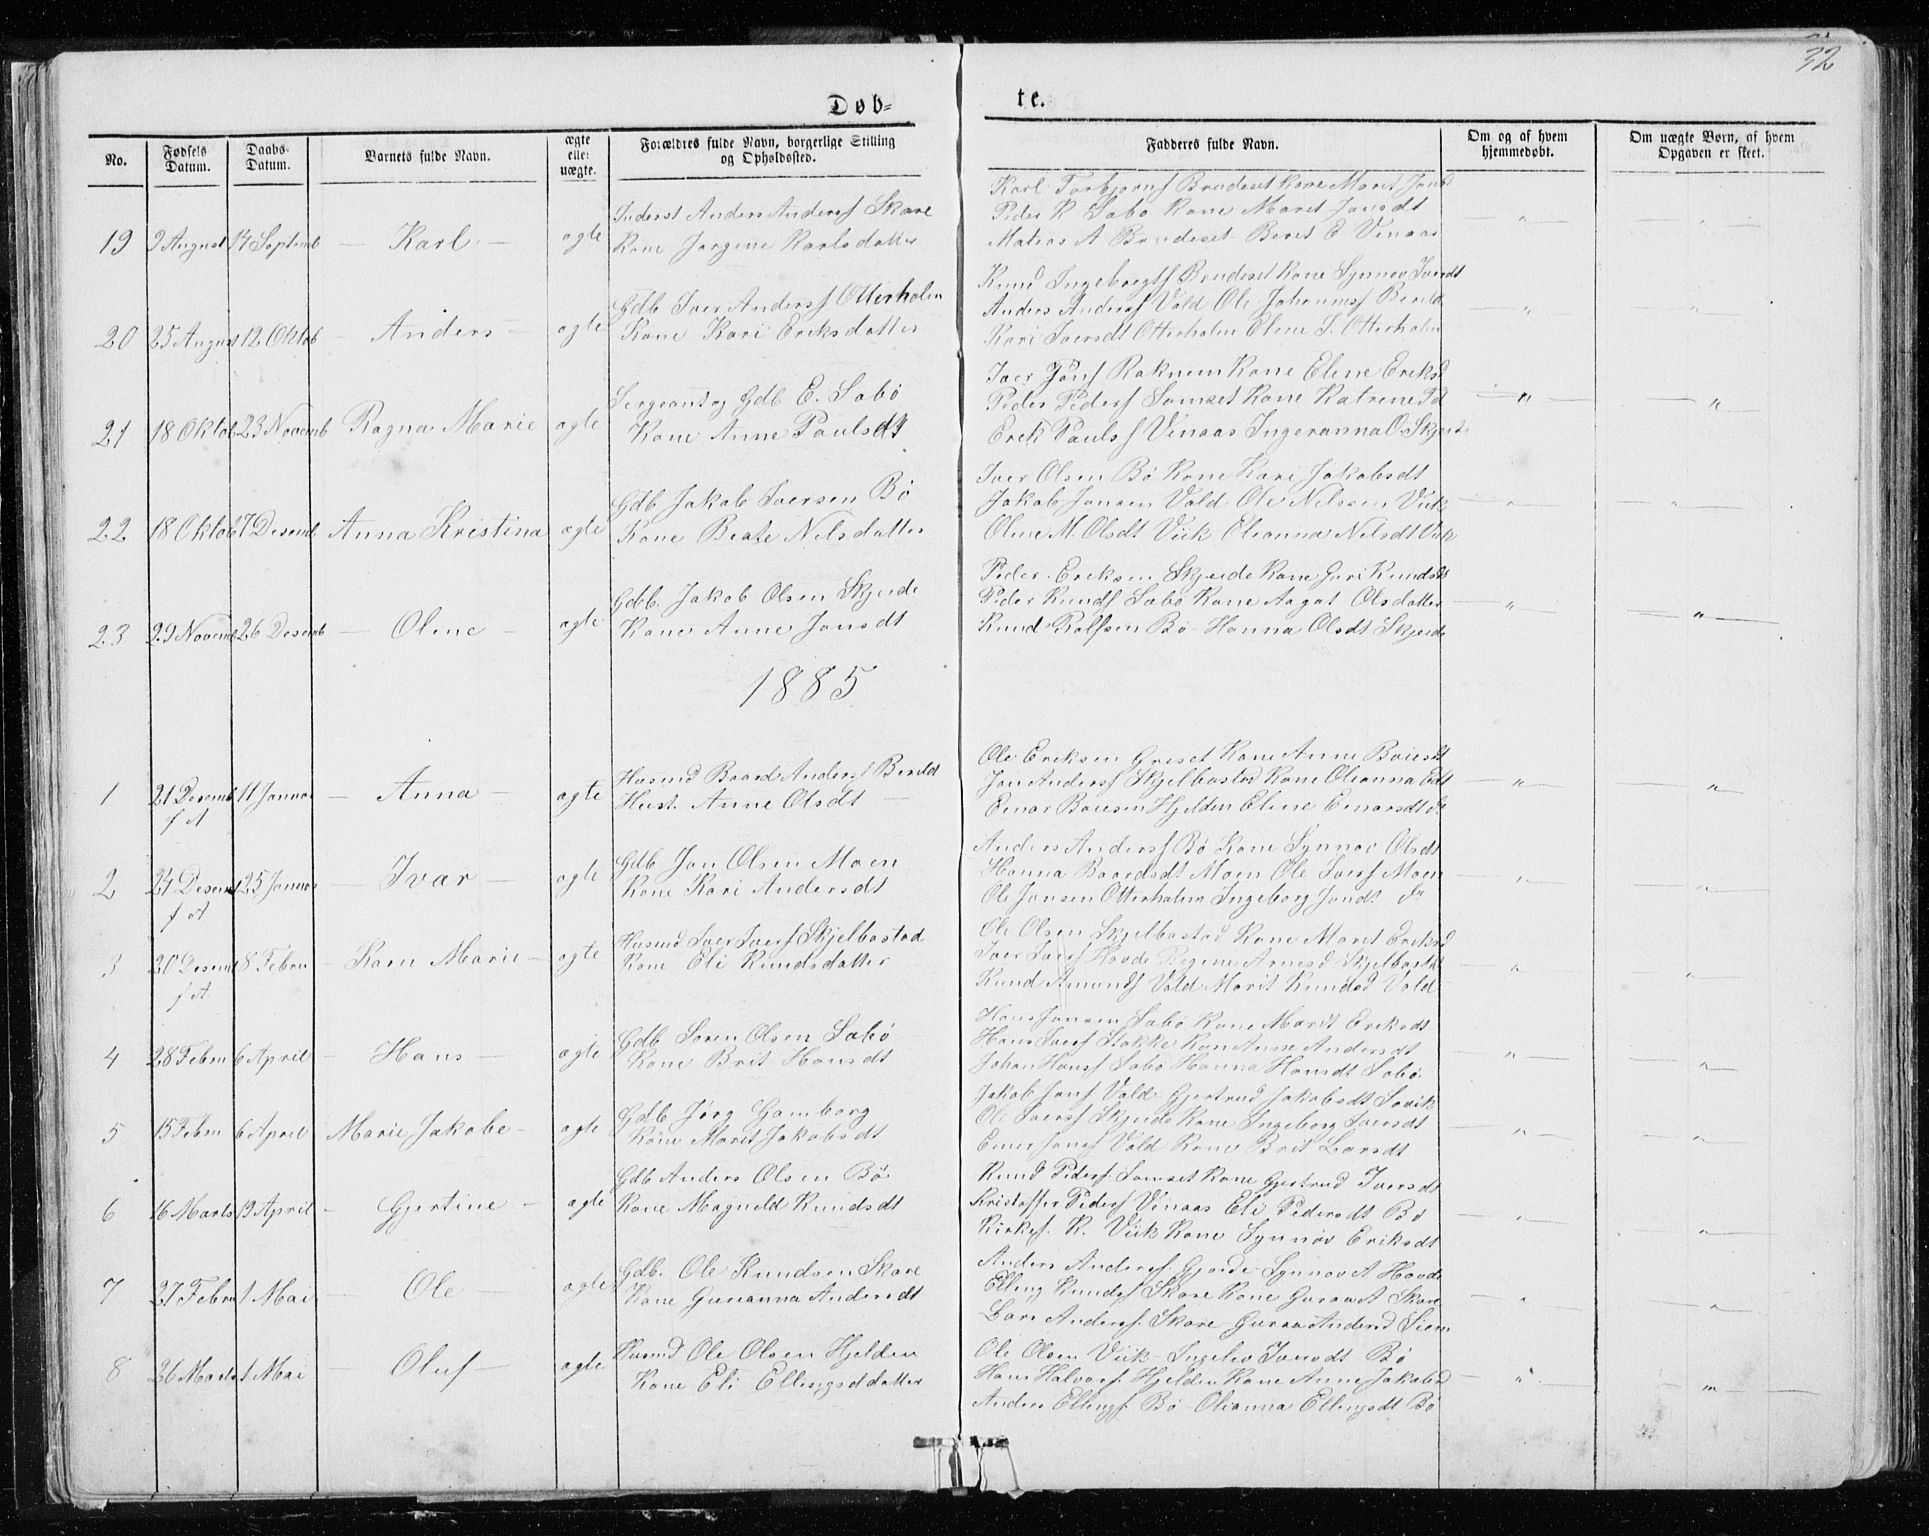 32
Døb-
te.
No.
Fødsels Datum.
Daabs-Datum.
Barnets fulde Navn.
ægte eller uægte.
Forældres fulde Navn, borgerlige Stilling og Opholdssted.
Fadderes fulde Navn.
Om og af hvem hjemmedøbt.
Om uægte Børn, af hvem Opgaven er skeet.
19 9 August 14 Septemb — Karl — ægte
Inderst Anders Andersf Skare
Kone Jørgine Karlsdatter
Karl Torbjørnsf Brudeset Kone Marit Jonsd
Peder K Sæbø Kone Maret Jonsdt
Matias A Brudeset Beret E Vinaas
— " —
20 25 August 12 Oktob — Anders — ægte
Gdb Iver Andersf Otterholm
Kone Kari Eriksdatter
Knud Ingebregtsf Brudeset Kone Synnøv Iversdt
Anders Andersf Vold Ole Johannesf Berild
Kari Iversdt Otterholm Eline I. Otterholm
— " —
21 18 Oktob 23 Novemb Ragna Marie ægte
Sergeant og Gdb E. Sæbø
Kone Anne Paulsdt
Iver Jonsf Raknem Kone Eline Eriksd
Peder Pedersf Somset Kone Katrene Pd
Erik Paulsf Vinaas Ingeranna O. Skjeide
— " —
22 18 Oktob 7 Desemb Anna Kristina ægte
Gdb Jakob Iversen Bø
Kone Beate Nilsdatter
Iver Olsen Bø Kone Kari Jakobsdt
Jakob Jonsen Vold Ole Nilssen Viik
Oline M. Olsdt Viik Elianna Nilsdt Viik
— " —
23 29 Novemb 26 Desemb — Oline — ægte
Gdb. Jakob Olsen Skjeide
Kone Anne Jonsdt
Peder Eriksen Skjeide Kone Guri Knudsdt
Peder Knudsf Sæbø Kone Aagot Olsdatter
Knud Rolfsen Bø Hanna Olsdt Skjeide
— " —
1885
1 21 Desemb f A 11 Januar — Anna — ægte
Husmd Baard Andersf Berild
Hust. Anne Olsdt
Ole Eriksen Griset Kone Anne Boiesdt
Jon Andersf Skjelbostad Kone Olianna Edt
Einar Boiesen Hjelden Eline Einarsdt do
— " —
2 24 Desemb f A 25 Januar — Ivar — ægte
Gdb Jon Olsen Moen
Kone Kari Andersdt
Anders Andersf Bø Kone Synnøv Olsdt
Hanna Baardsdt Moen Ole Iversf Moen
Ole Jonsen Otterholm Ingeborg Jonsdt do
— " —
3 20 Desemb f A. 8 Febru — Karn Marie — ægte
Husmd Iver Iversf Skjelbostad
Kone Eli Knudsdatter
Ole Olsen Skjelbostad Kone Marit Eriksd
Iver Iversf Hovde Regine Arnesd Skjelbostad
Knud Amundsf Vold Marit Knudsd Vold
— " —
4 28 Febru 6 April — Hans — ægte
Gdb Søren Olsen Sæbø
Kone Brit Hansdt
Hans Jonsen Sæbø Kone Marit Eriksdt
Hans Iversf Stokke Kone Anne Andersdt
Johan Hansf Sæbø Hanna Hansdt Sæbø
— " —
5 15 Febru 6 April Marie Jakobe — ægte
Gdb Jørg Gamborg
Kone Maret Jakobsdt
Jakob Jonsf Vold Gjertrud Jakobsdt Sovik
Ole Iversf Skjeide Kone Ingeborg Iversdt
Einer Jonsf Vold Kone Brit Larsdt
— " —
6 16 Marts 19 April — Gjertine — ægte
Gdb Anders Olsen Bø
Kone Magnild Knudsdt
Knud Pedersf Somset Kone Gjertrud Iversdt
Kristoffer Pedersf Vinaas Eli Pedersdt Bø
Kirkes. K. Viik Kone Synnøv Eriksdt
— " —
7 27 Febru 1 Mai — Ole — ægte
Gdb. Ole Knudsen Skare
Kone Gurianna Andersdt
Anders Andersf. Gjerde Synnøv A Hovde
Elling Knudsf Skare Kone Guraa A Skare
Lars Andersf. Skare Guraa Andersd Siem
— " —
8 26 Marts 1 Mai Oluf — ægte
Husmd Ole Olsen Hjelden
Kone Eli Ellingsddatter
Ole Olsen Viik Ingelev Jonsdt Bø
Hans Halvorsf Hjelden Kone Anne Jakobsd
Anders Ellingsf. Bø Olianna Ellingsdt Bø
— " —